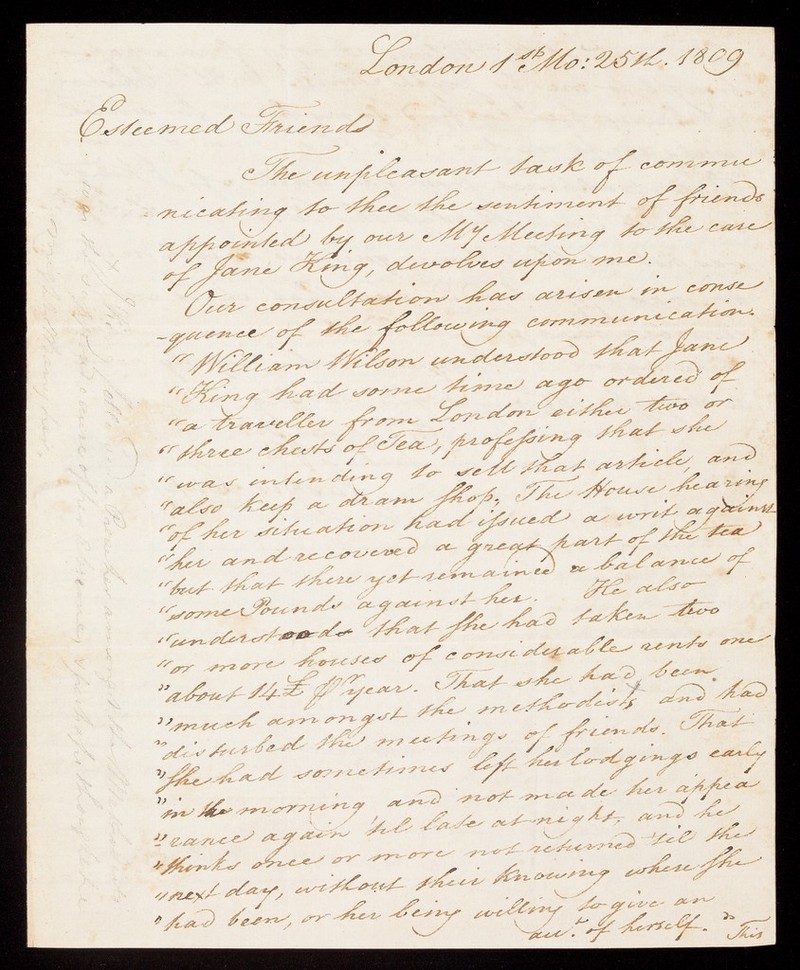 London 1st Mo: 25th. 1809
Esteemed Friends
The unpleasant task of commu
-nicating to thee the sentiment of friends
appointed by our My Meeting to the care
of Jane King, devolves upon me.
Our consultation has arisen in conse
-quence of the following communication.
"William Wilson understood that Jane
"King had some time ago ordered of
"a traveller from London either two or
"three chests of Tea, professing that she
"was intending to sell that article and
"also keep a dram shop, The House hearing
"of her situation had issued a writ against
"her and recovered a great part of the tea
"but that there yet remained a balance of
"some Pounds against her. He also
"understood that she had taken two
"or more houses of considerable rents one
"about 14£ pr year. That she had been
"much amongst the methodists and had
"disturbed the meetings of friends. That
"She had sometimes left her lodgings early
"in the morning and not made her appea
"rance again 'til late at night, and he
"thinks once or more not returned 'til the
"next day, without their knowing where she
"had been, or her being willing to give an
acct. of herself." This